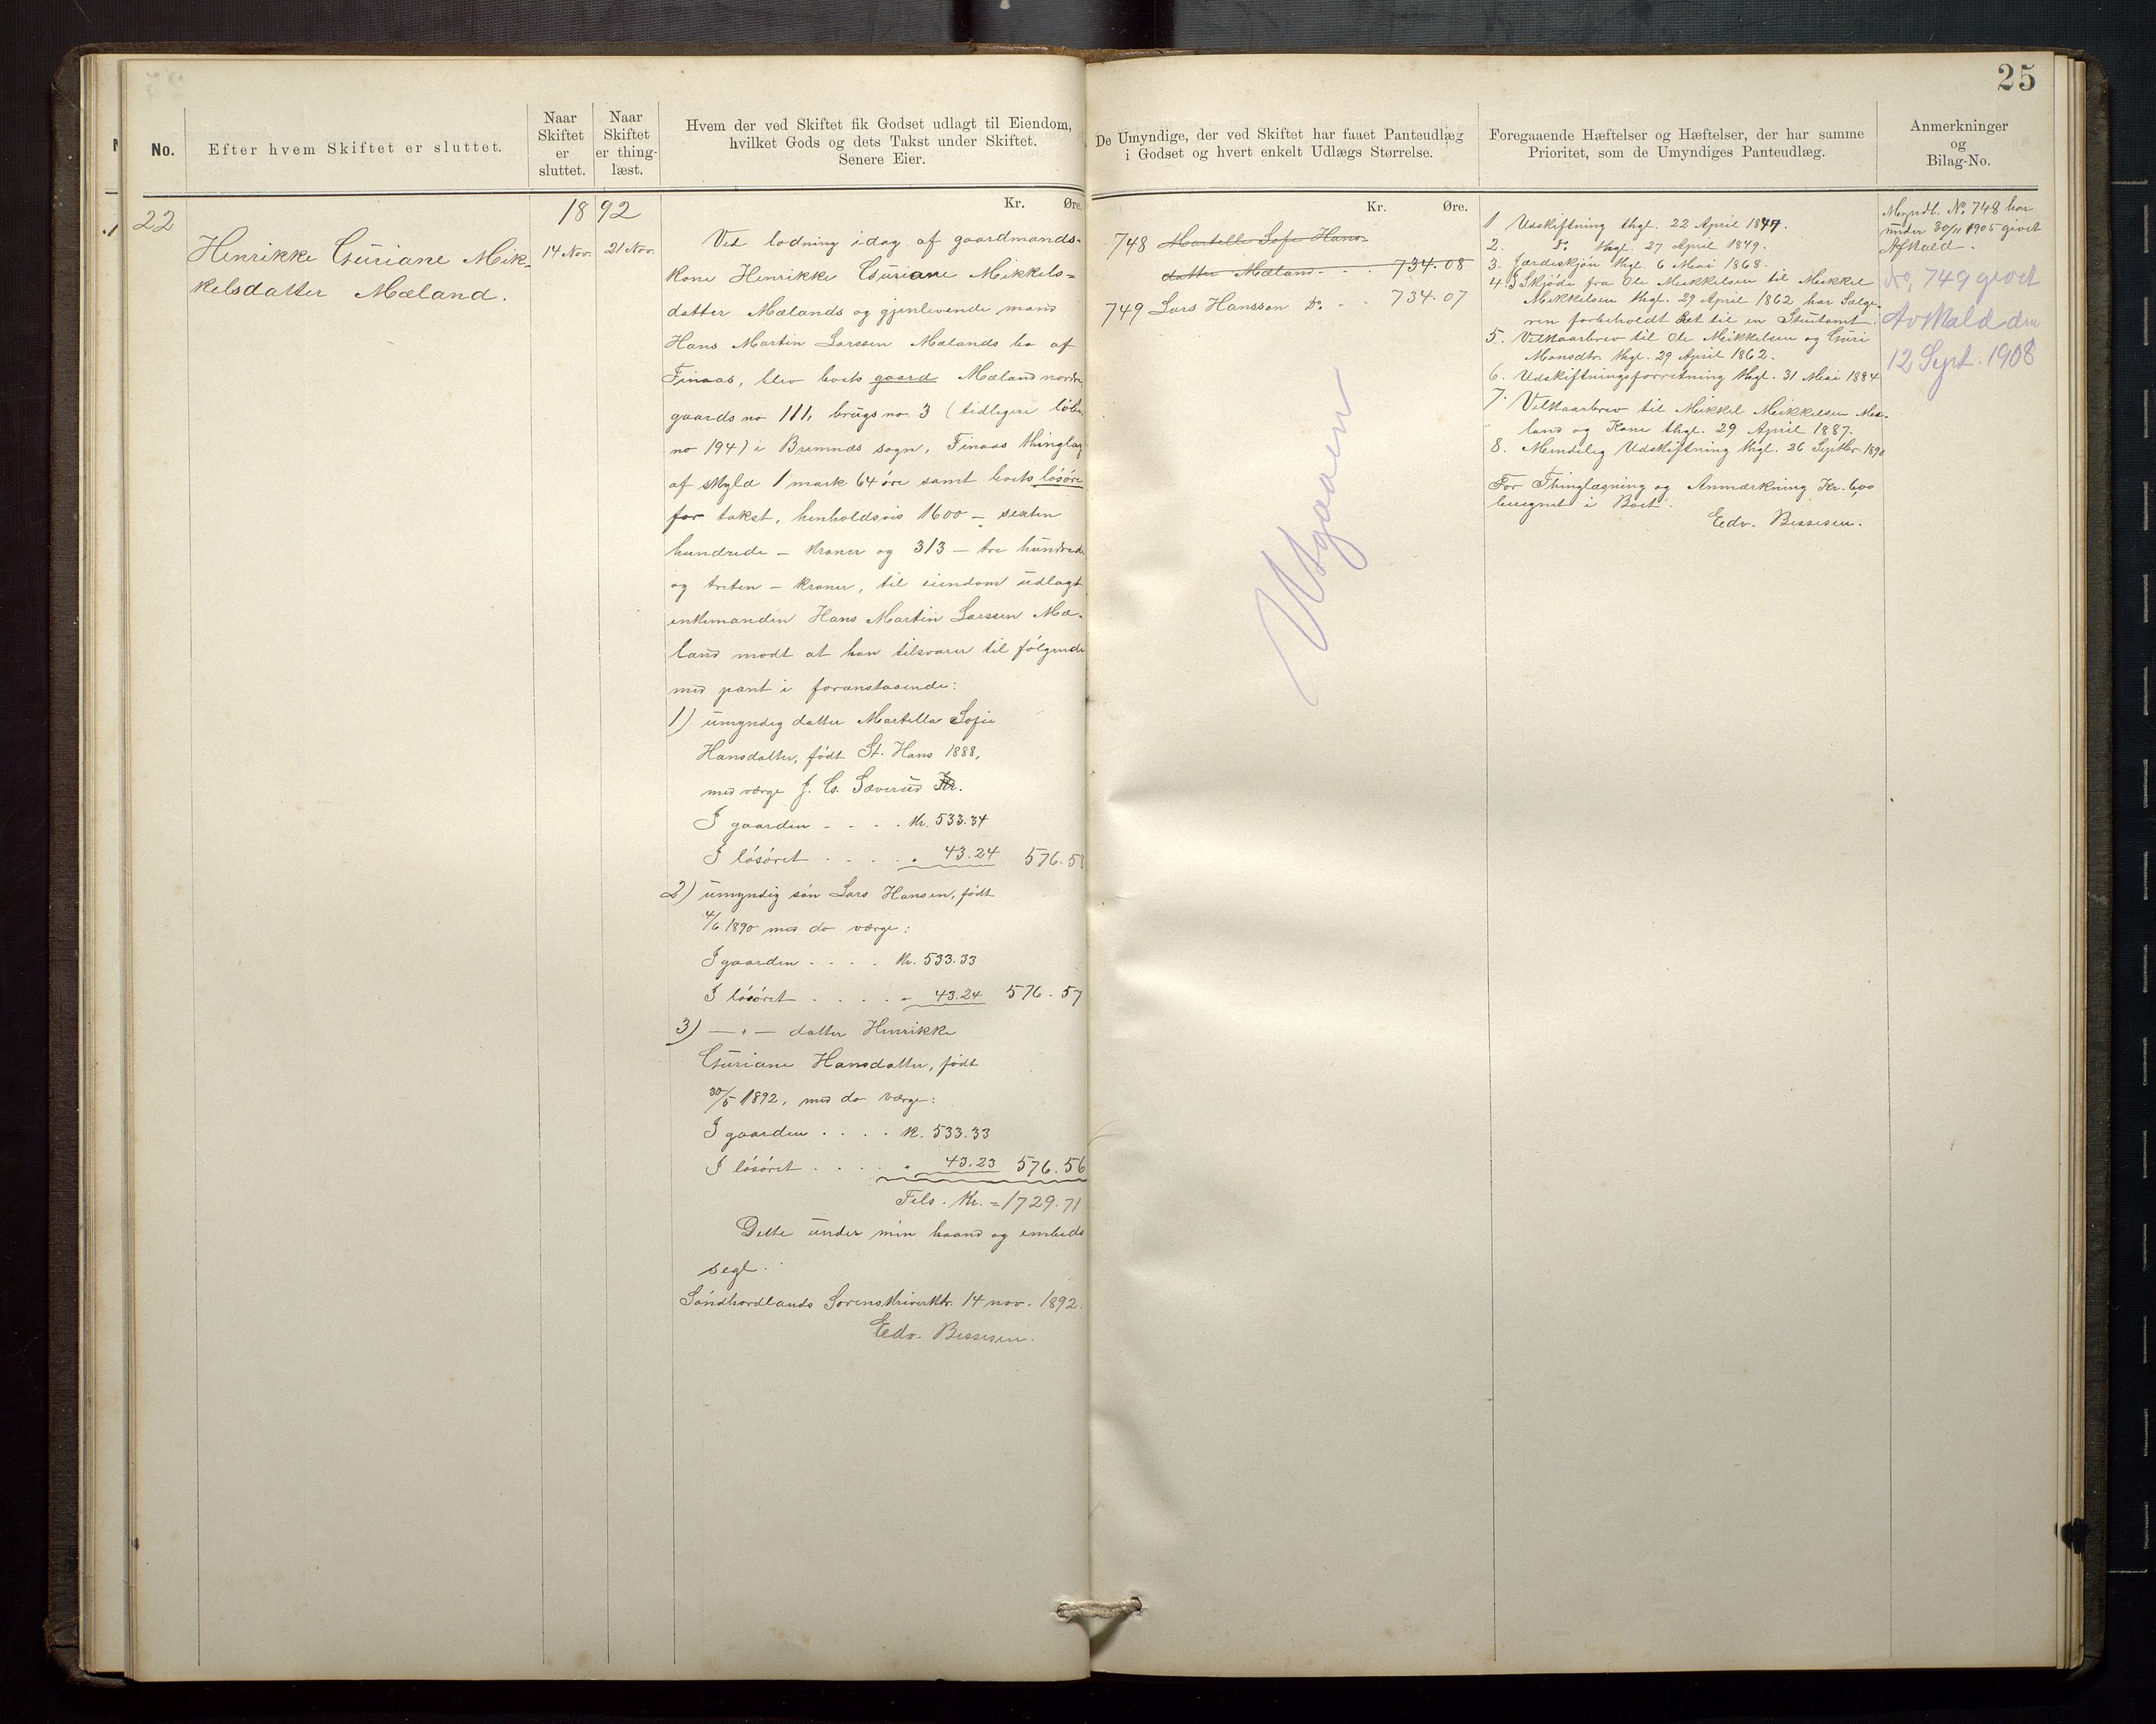 25
No.
Efter hvem Skiftet er sluttet.
Naar
Skiftet
er
sluttet.
Naar
Skiftet
er thing-
læst.
Hvem der ved Skiftet fik Godset udlagt til Eiendom,
hvilket Gods og dets Takst under Skiftet.
Senere Eier.
22
Henrikke Guriane Mik-
kelsdatter Mæland.
1892
14 Nov. 21 Nov.
Kr. Øre.
Ved lodning idag af gaardmands-
kone Henrikke Guriane Mikkels-
datter Mælands og gjenlevende mand
Hans Martin Larssen Mælands bo af
Finaas, blev boets gaard Mæland nordre
gaards no 111, brugs no. 3 (tidligere löbe
no 194) i Bremnæs sogn, Finaas thinglag
af skyld 1 mark 64 öre samt boets lösöre
for takst, henholdsvis 1600 – sexten
hundrede – kroner og 313 – tre hundrede
og tretten – kroner, til eiendom udlagt
enkemanden Hans Martin Larssen Mæ-
land modt at han tilsvarer til fölgende
med pant i foranstaaende:
1) umyndig datter Martella Sofie
Hansdatter, födt St. Hans 1888,
med værge J. C. Sæverud
I gaarden . . . . Kr. 533.34
I lösöret . . . . . 43.24 576.58
2) umyndig sön Lars Hansen, födt
4/6 1890 med do værge:
I gaarden . . . . Kr. 533.33
I lösöret . . . . . 43.24 576.57
3) – " – datter Henrikke
Guriane Hansdatter, födt
30/5 1892, med do værge:
I gaarden . . . . K. 533.33
I lösöret . . . . . 43.23 576.56
Tils. Kr. = 1729.71
Dette under min haand og embeds
segl.
Söndhordlands Sorenskriverktr. 14 nov. 1892.
Edv. Bessesen.
De Umyndige, der ved Skiftet har faaet Panteudlæg
i Godset og hvert enkelt Udlægs Størrelse.
Kr. Øre.
748 Martella Sofie Hans-
datter Mæland . . . 734.08
749 Lars Hansson Do . . 734.07
Utgaaen
Foregaaende Hæftelser og Hæftelser, der har samme
Prioritet, som de Umyndiges Panteudlæg.
1 Udskiftning thgl. 22 April 1847.
2. Do thgl. 27 April 1849.
3. Jordeskjön thgl. 6 Mai 1868.
4. I Skjöde fra Ole Mikkelsen til Mikkel
Mikkelsen thgl. 29 April 1862 har Sælge-
ren forbeholdt Ret til en
5. Vilkaarbrev til Ole Mikkelsen og Guri
Monsdtr. thgl. 29 April 1862.
6. Udskiftningsforretning thgl. 31 Mai 1884
7. Vilkaarbrev til Mikkel Mikkelsen Mæ-
land og Kone thgl. 29 April 1887.
8. Mindelig Udskiftning thgl. 26 Septbr. 1890
For Thinglæsning og Anmærkning Kr. 6,00
beregnet i Boet.
Edv. Bessesen.
Anmerkninger
og
Bilag-No.
Myndl. No. 748 har
under 30/11 1905 givet
Afkald.
No. 749 givet
Avkald den
12 Sept. 1908